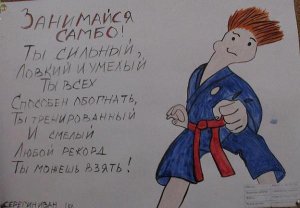 Занимайся
самбо!
Ты сильный,
Ловкий и умелый
Ты всех
Способен обогнать,
Ты тренированный
И смелый
Любой рекорд
Ты можешь взять!
Серегин Иван